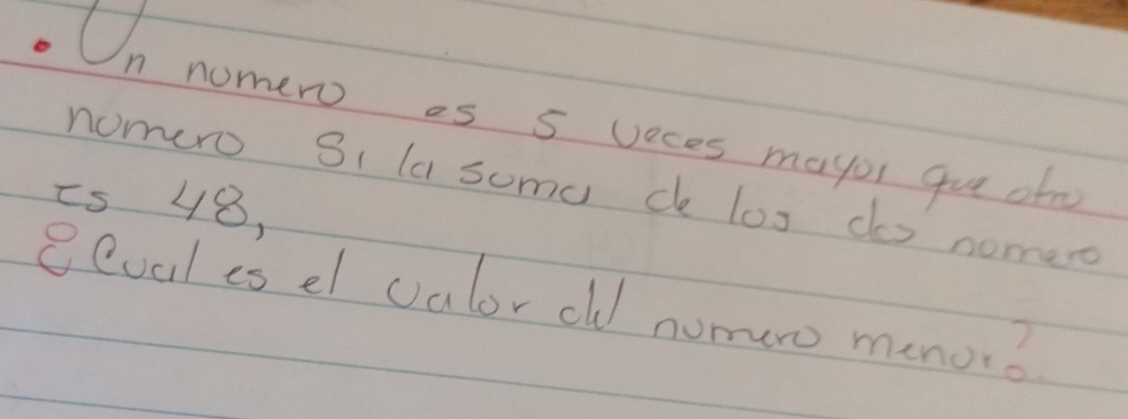 • Un numero es 5 veces mayor que otro
numero Si la suma de los dos numero
es 48,
¿Cual es el valor del numero menor?